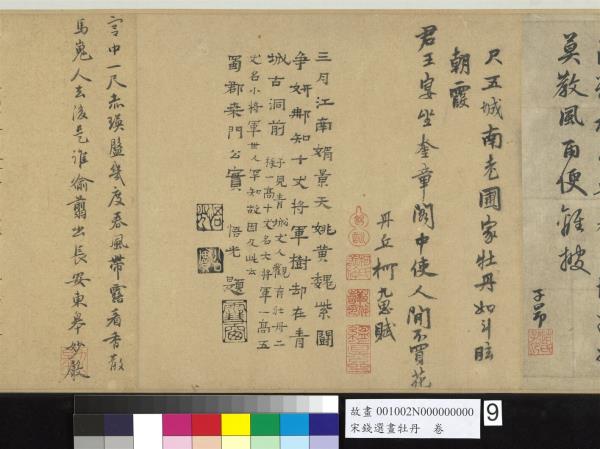 莫教風雨便離披
子昂
尺五城南老圃家牡丹如斗眩
朝霞
君王宴坐奎章閣中使人間不買花
丹丘柯九思賦
三月江南媚景天姚黃魏紫鬪
爭妍那知十丈將軍樹却在青
城古洞前 予見青城丈人觀有牡丹二
株一高十丈名大將軍一高五
丈名小將軍世人罕知故因及此云
蜀郡桑門公實 悟光 題
宮中一尺赤瑛盤幾度春風帶露看香散
馬嵬人去後是誰偷翦出長安東皋妙聲
故畫 001002N000000000
宋錢選畫牡丹 卷
9